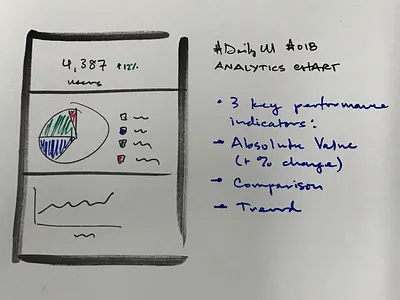 4,387 +12%
users
#DailyUI #018
ANALYTICS CHART
• 3 key performance
indicators:
→ Absolute Value
(+ % change)
→ Comparison
→ Trend